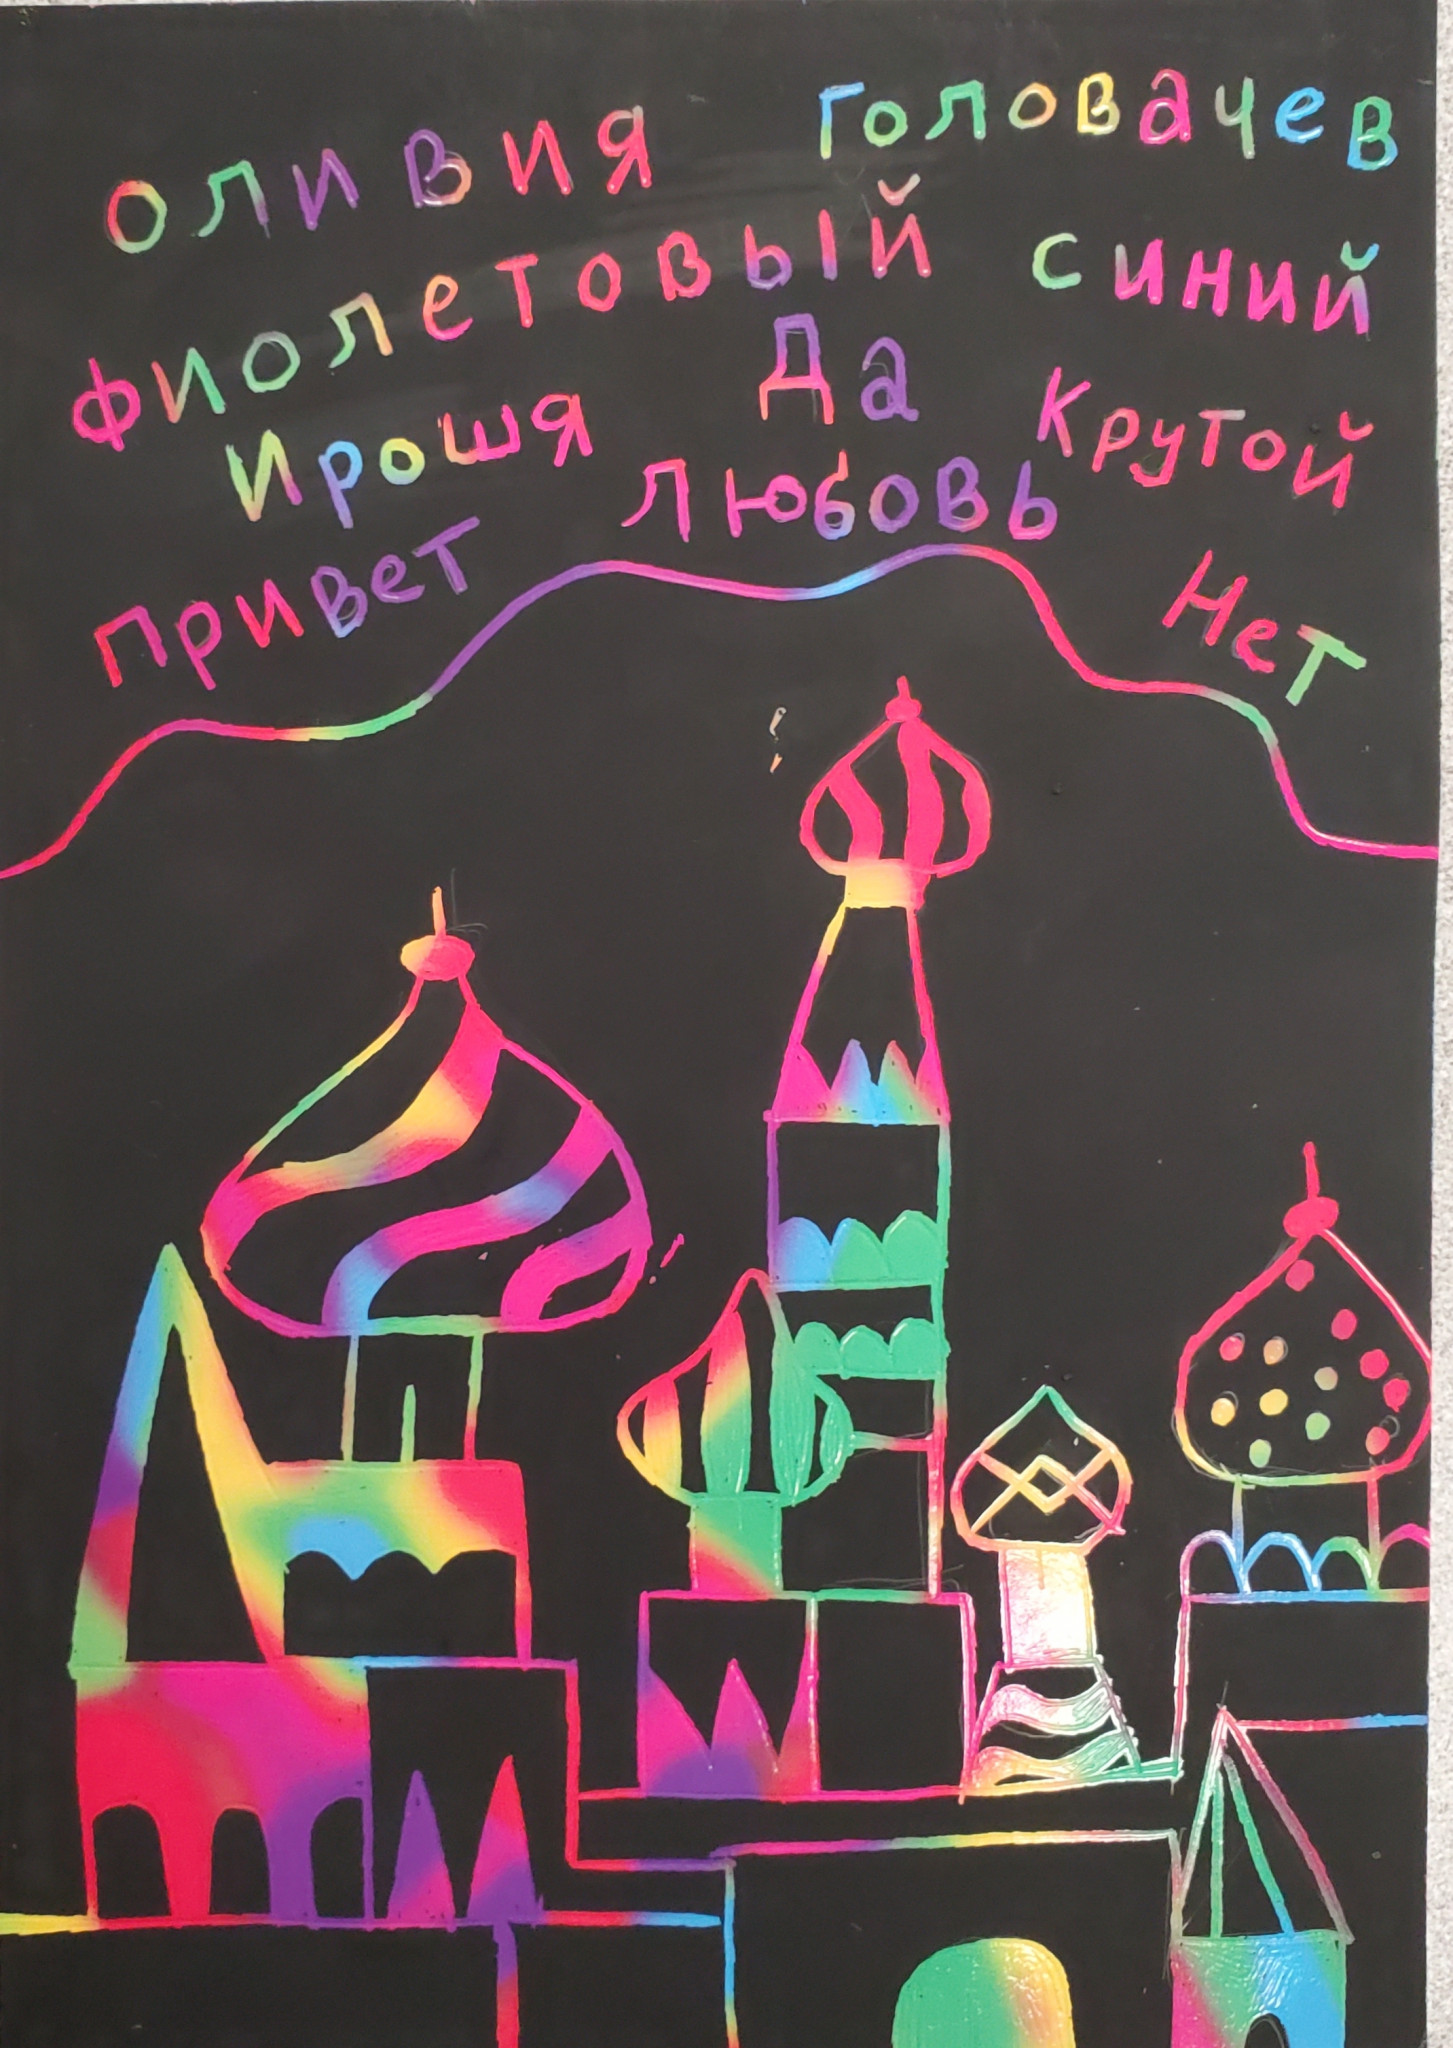 оливия Головачев
фиолетовый синий
Ирошя Да Крутой
привет любовь Нет